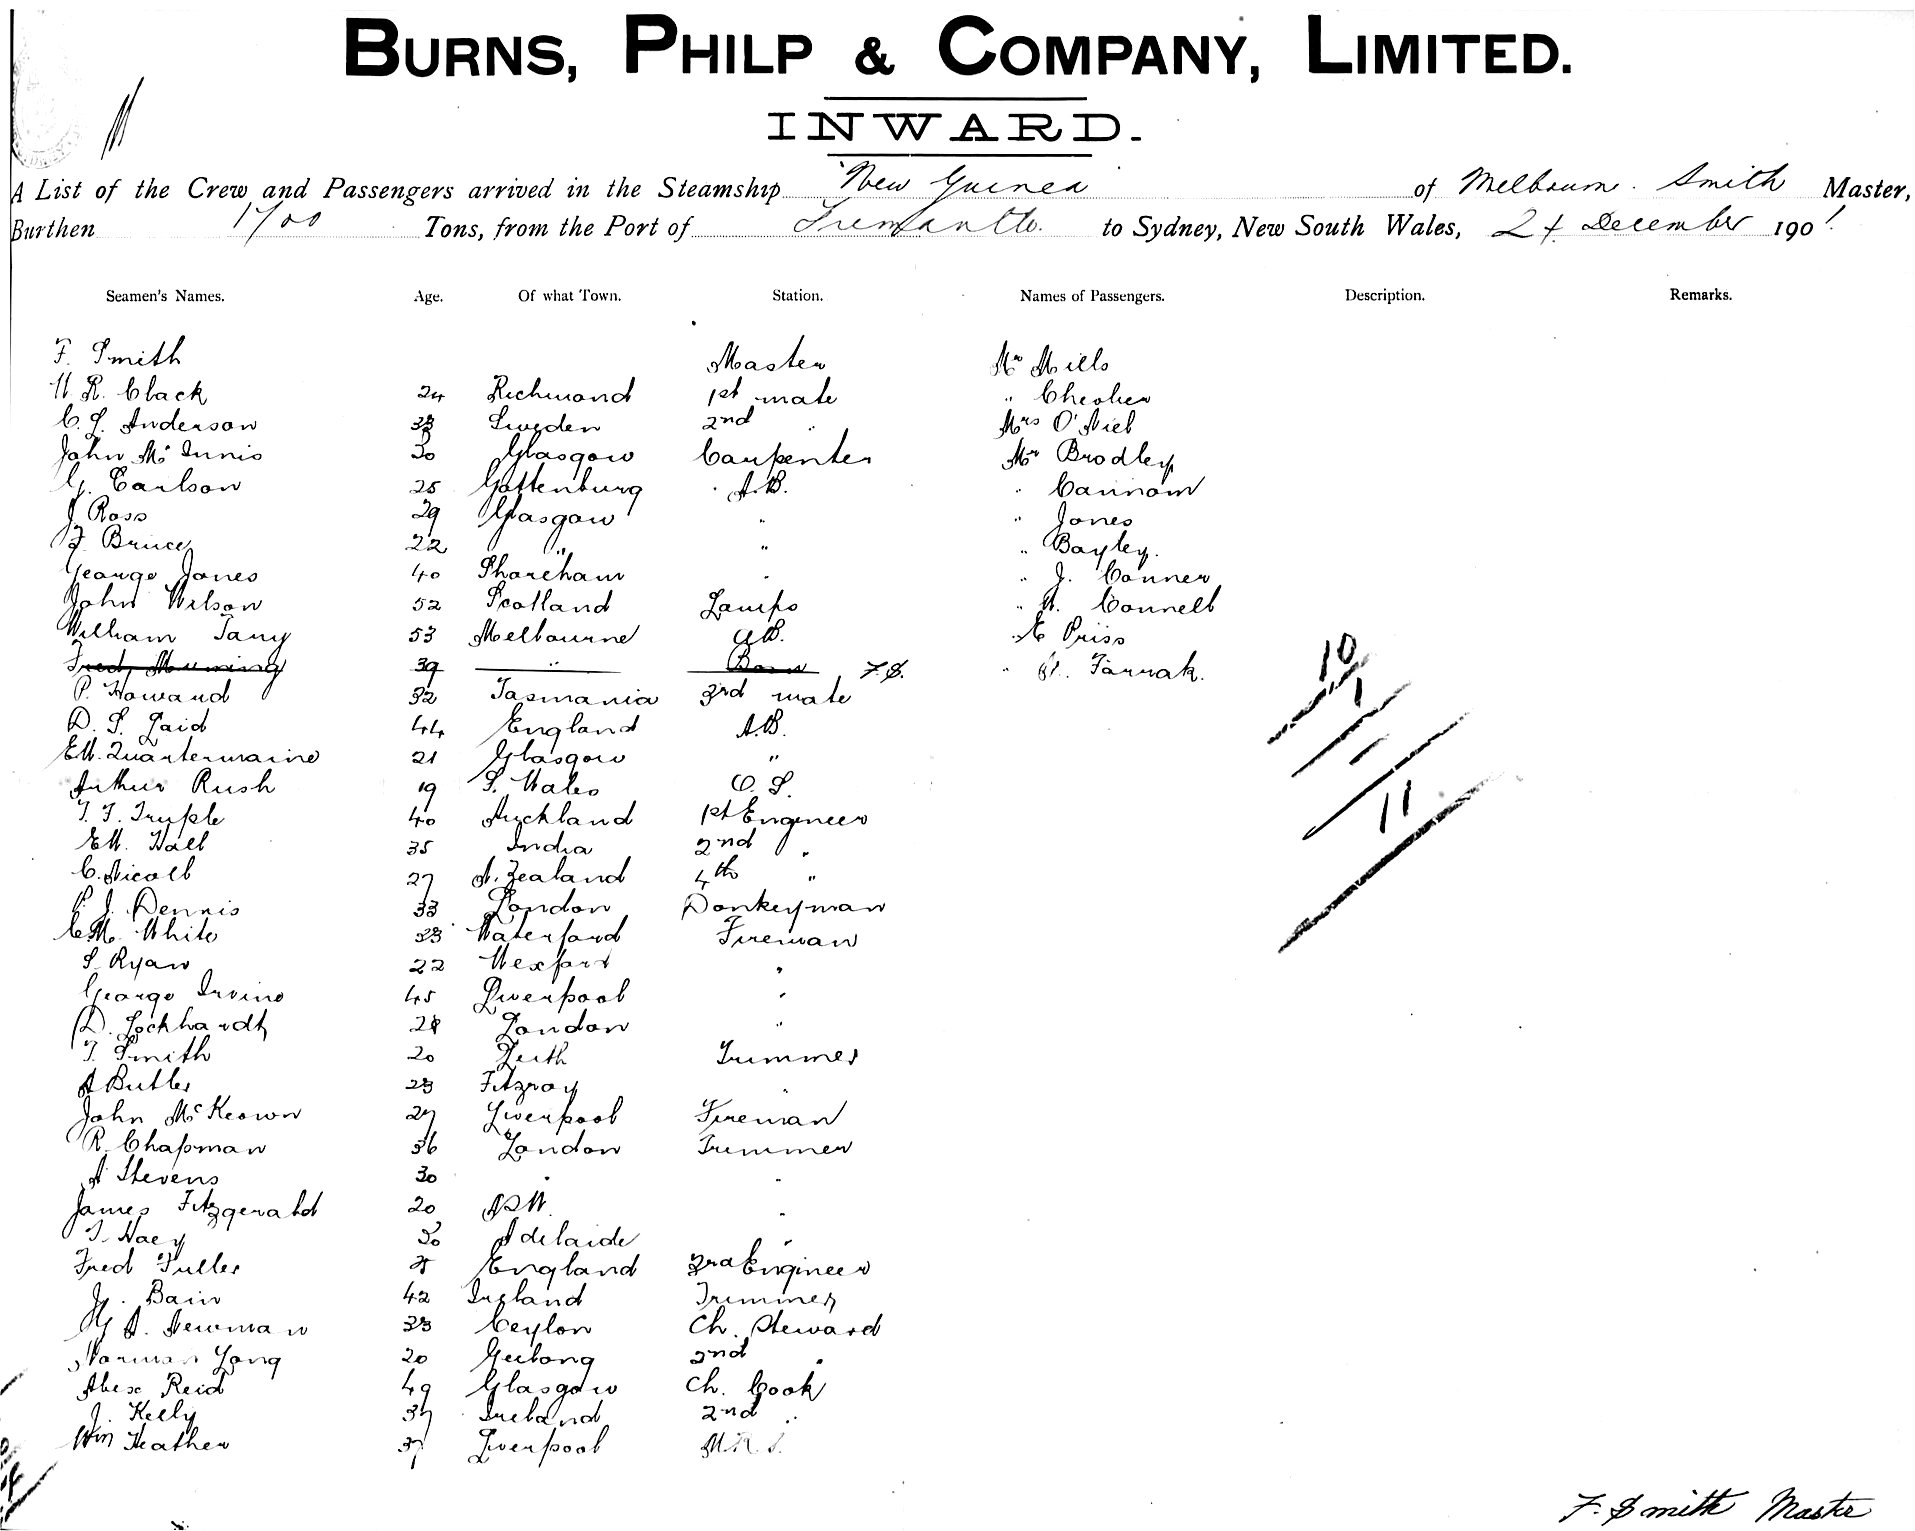 BURNS, PHILP & COMPANY, LIMITED.
INWARD.
A List of the Crew and Passengers arrived in the Steamship "New Guinea" of Melbourn. Smith Master,
Burthen 1700 Tons, from the Port of to Sydney, New South Wales, 24 December 1901
Seamen's Names. Age. Of what Town. Station. Names of Passengers. Description. Remarks.
F. Smith Master Mr Mills
W R. Clack 24 Richmond 1st mate "
C. S. Anderson 33 Sweden 2nd " Mrs O'Niel
John McInnis 30 Glasgow Carpenter Mr Brodley
G. Carlson 25 Gottenburg A.B. " Cannom
J Ross 29 Glasgow " " Jones
J. Bruce 22 " " " Bayley.
George Jones 40 Shoreham " " J. Conner
John Wilson 52 Scotland Lamps " A. Connell
William Tany 53 Melbourne AB. " E Priss
Fred 39 " F.S. " Farrak.
P. Howard 32 Tasmania 3rd mate
D. S. Laid 44 England A.B.
EW. Quartermaine 21 Glasgow "
Arthur Rush 19 S. Wales O. S.
T. F. Truple 40 Auckland 1st Engineer
EW. Hall 35 India 2nd "
C. Nicoll 27 N. Zealand 4th "
P. J. Dennis 33 London Donkeyman
White 33 Waterford Fireman
S. Ryan 22 Wexford "
George Irvine 45 Liverpool "
D. Lockhardt London "
T. Smith 20 Leith Trimmer
A Butler 23 Fitzroy "
John McKeown 27 Liverpool Fireman
R. Chapman 36 London Trimmer
A Stevens 30 " "
James Fitzgerald 20 "
T. Haey 30 Adelaide "
Fred Fuller England 3rd Engineer
Bain 42 Ireland Trimmer
A. Newman 33 Ceylon Ch. Steward
Norman Long 20 Geelong 2nd "
Alex Reid 49 Glasgow Ch. Cook
J. Kelly 37 Ireland 2nd "
Wm Heather 37 Liverpool
10
1
11
F. Smith Master